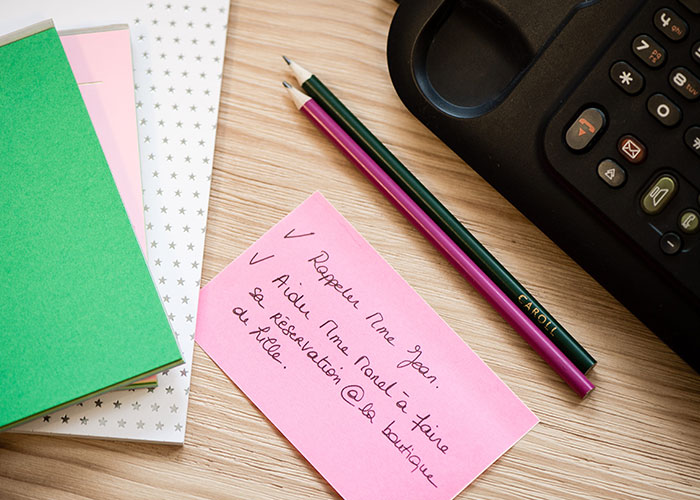 ✓ Rappeler Mme Jean.
✓ Aider Mme Morel à faire
sa réservation @ la boutique
de Lille.
CAROLL
4 GHI
7 PQRS
8 TUV
*
0